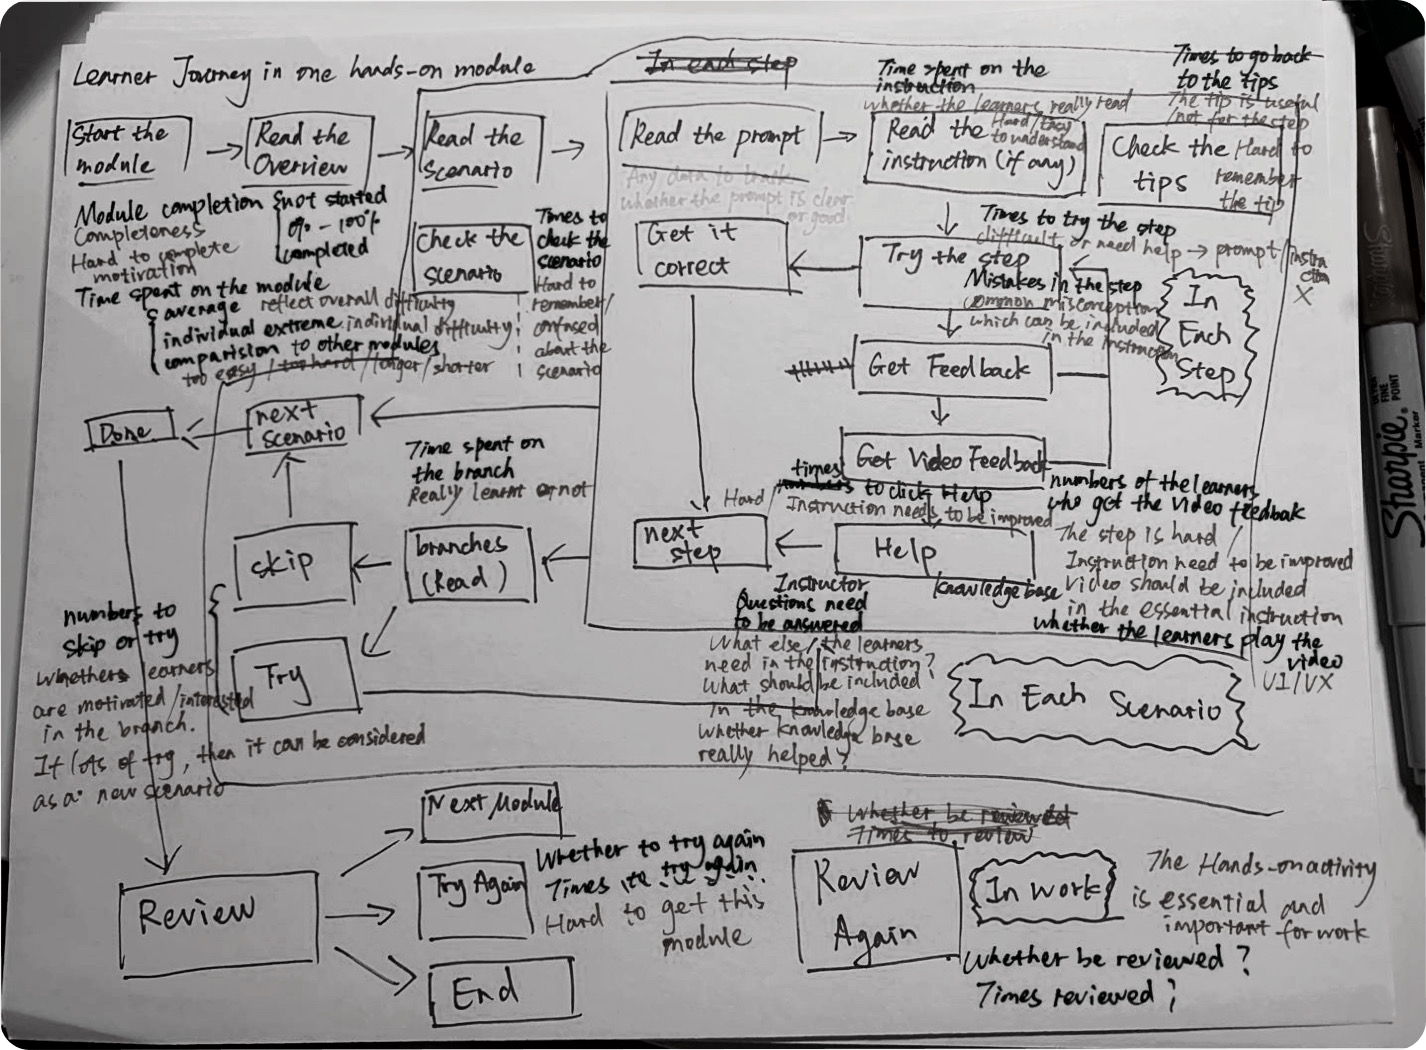 Learner Journey in one hands-on module
In each step
Start the
module
Read the
Overview
Read the
scenario
Read the prompt
Any data to track
whether the prompt is clear
or good
Time spent on the
instruction
whether the learners really read
Read the
instruction (if any)
Hard/Easy
to understand
Times to go back
to the tips
The tip is useful
/not for the step
Check the
tips
Hard to
remember
the tip
Module completion
not started
0% - 100%
completed
Completeness
Hard to complete
motivation
Time spent on the module
average reflect overall difficulty
individual extreme individual difficulty
comparision to other modules
too easy / too hard / longer / shorter
Check the
scenario
Times to
check the
scenario
Hard to
remember/
confused
about the
scenario
Get it
correct
Times to try the step
difficult or need help → prompt/instra
ction
X
Try the step
Mistakes in the step
common misconception
which can be included
in the instruction
In
Each
Step
Get Feedback
Get Video Feedback
Done
next
scenario
Time spent on
the branch
Really learnt or not
times
numbers to click Help
Hard/
Instruction needs to be improved
numbers of the learners
who get the video feedbak
The step is hard /
Instruction need to be improved
Video should be included
in the essential instruction
whether the learners play the
video
UI/UX
skip
branches
(Read)
next
step
Help
knowledge base
Instructor
Questions need
to be answered
What else/the learners
need in the instruction?
What should be included
in the knowledge base
whether knowledge base
really helped?
Try
numbers to
skip or try
Whethers learners
are motivated/interested
in the branch.
If lots of try, then it can be considered
as a new scenario
In Each Scenario
Next Module
Review
Try Again
End
Whether to try again
Times to try again
Hard to get this
module
Whether be reviewed
Times to review
Review
Again
In work
The Hands-on activity
is essential and
important for work
Whether be reviewed?
Times reviewed?
Sharpie
FINE
POINT
Marker